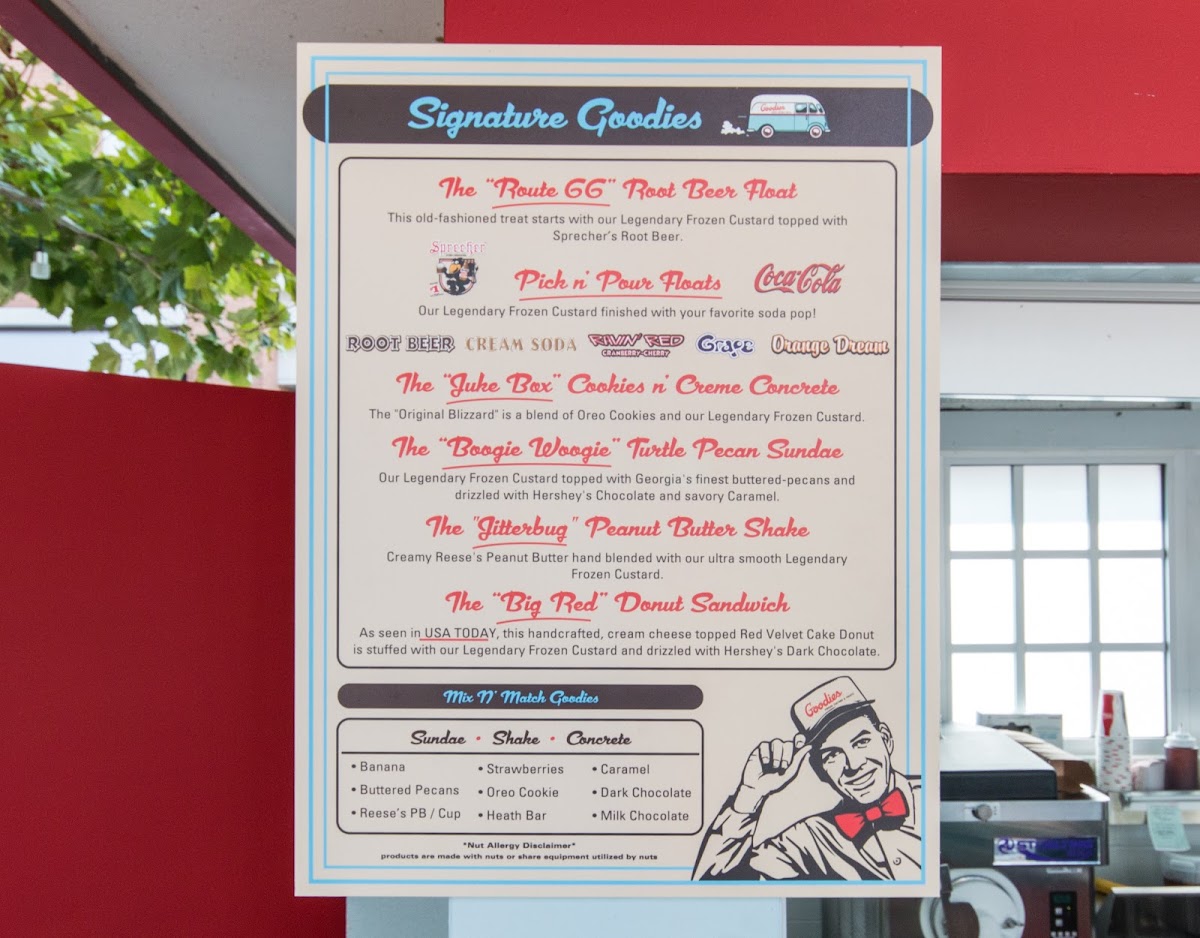 Signature Goodies
Goodies
The "Route 66" Root Beer Float
This old-fashioned treat starts with our Legendary Frozen Custard topped with
Sprecher's Root Beer.
Sprecher
Pick n' Pour Floats
Coca-Cola
Our Legendary Frozen Custard finished with your favorite soda pop!
ROOT BEER CREAM SODA RAVIN' RED Grape Orange Dream
CRANBERRY-CHERRY
The "Juke Box" Cookies n' Creme Concrete
The "Original Blizzard" is a blend of Oreo Cookies and our Legendary Frozen Custard.
The "Boogie Woogie" Turtle Pecan Sundae
Our Legendary Frozen Custard topped with Georgia's finest buttered-pecans and
drizzled with Hershey's Chocolate and savory Caramel.
The "Jitterbug" Peanut Butter Shake
Creamy Reese's Peanut Butter hand blended with our ultra smooth Legendary
Frozen Custard.
The "Big Red" Donut Sandwich
As seen in USA TODAY, this handcrafted, cream cheese topped Red Velvet Cake Donut
is stuffed with our Legendary Frozen Custard and drizzled with Hershey's Dark Chocolate.
Mix N' Match Goodies
Sundae • Shake • Concrete
• Banana • Strawberries • Caramel
• Buttered Pecans • Oreo Cookie • Dark Chocolate
• Reese's PB / Cup • Heath Bar • Milk Chocolate
*Nut Allergy Disclaimer*
products are made with nuts or share equipment utilized by nuts
Goodies